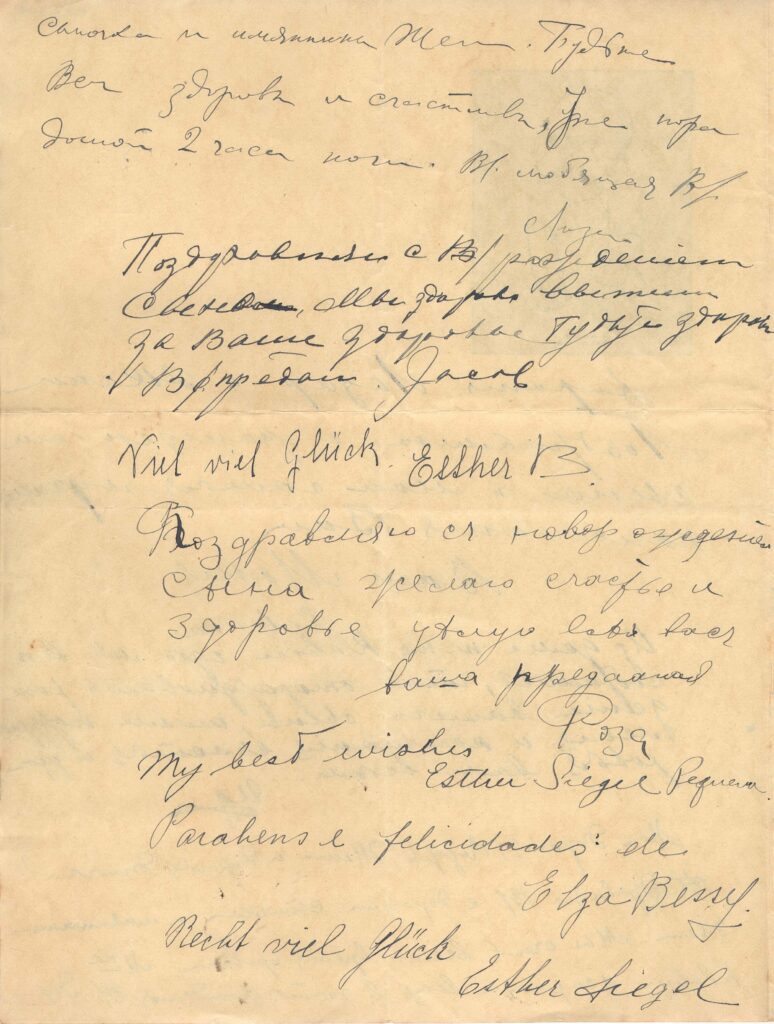 сыночка и имянины Жени. Будьте
Все здоровы и счастливы, уже пора
домой 2 часа ночи. В/ любящая В/
Лиза
Поздравляем с В/ рождением
Мы здоровы
за Ваше здоровье Будьте здоровы
В/ предан. Jacob
Viel viel Glück. Esther B.
Поздравляю съ новорожденем
сына желаю счастье и
здоровье целую всех васъ
ваша предааная
Роза
My best wishes
Esther Siegel Pequena.
Parabens e felicidades: de
Elza Bessy.
Recht viel Glück
Esther Siegel